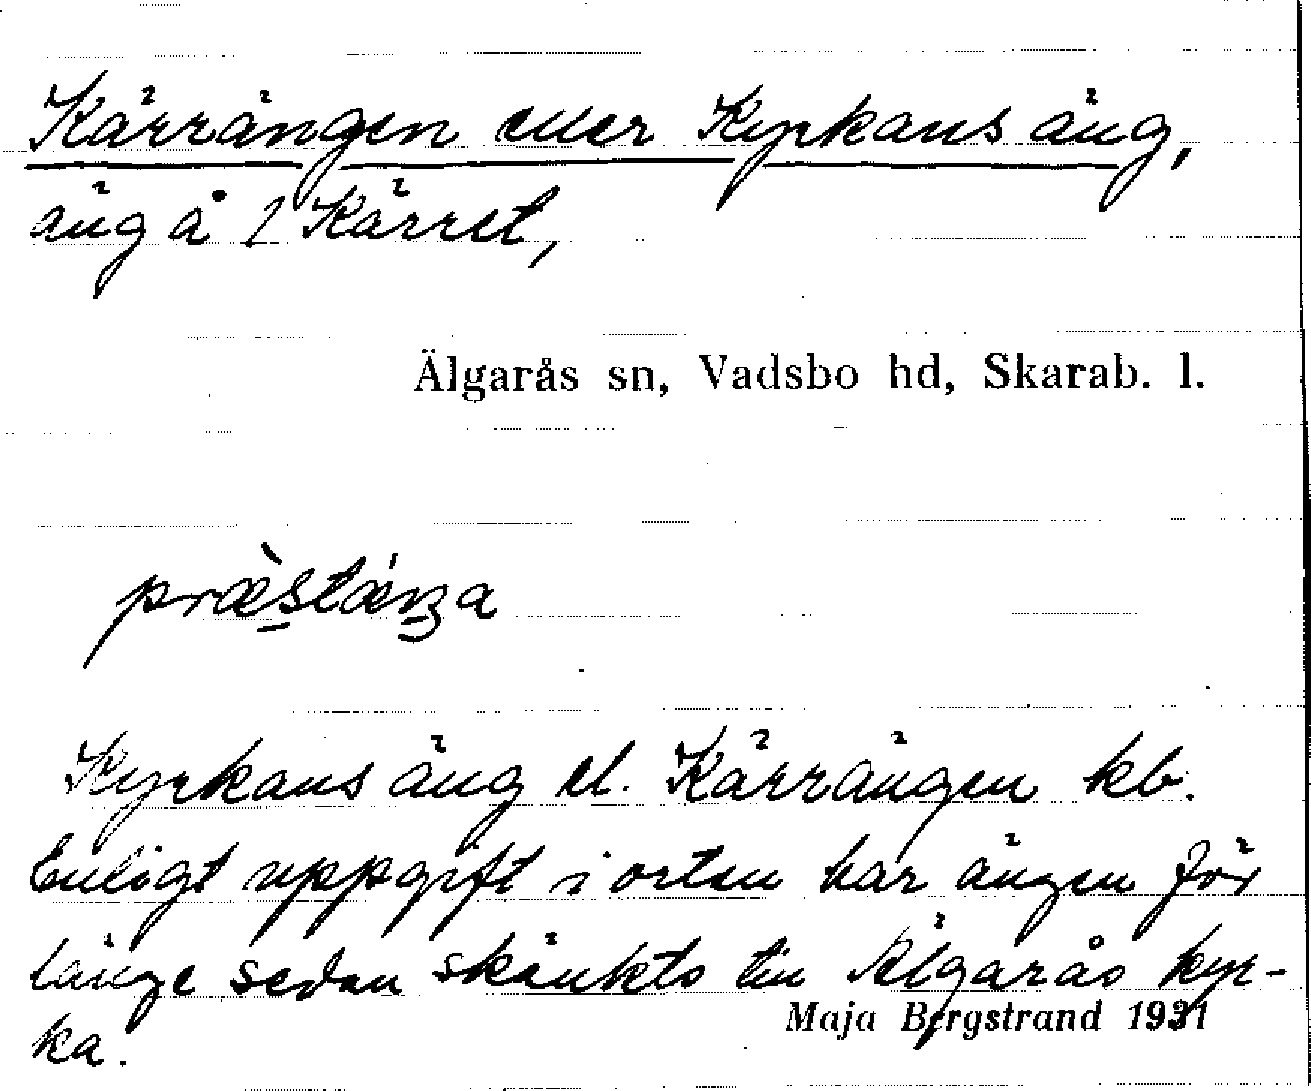 Kärrängen eller Kyrkans äng,
äng å 1 Kärret,
Älgarås sn, Vadsbo hd, Skarab. l.
præ̀stǽŋa
Kyrkans äng el. Kärrängen kb.
Enligt uppgift i orten har ängen för
länge sedan skänkts till Älgarås kyr-
ka.
Maja Bergstrand 1931